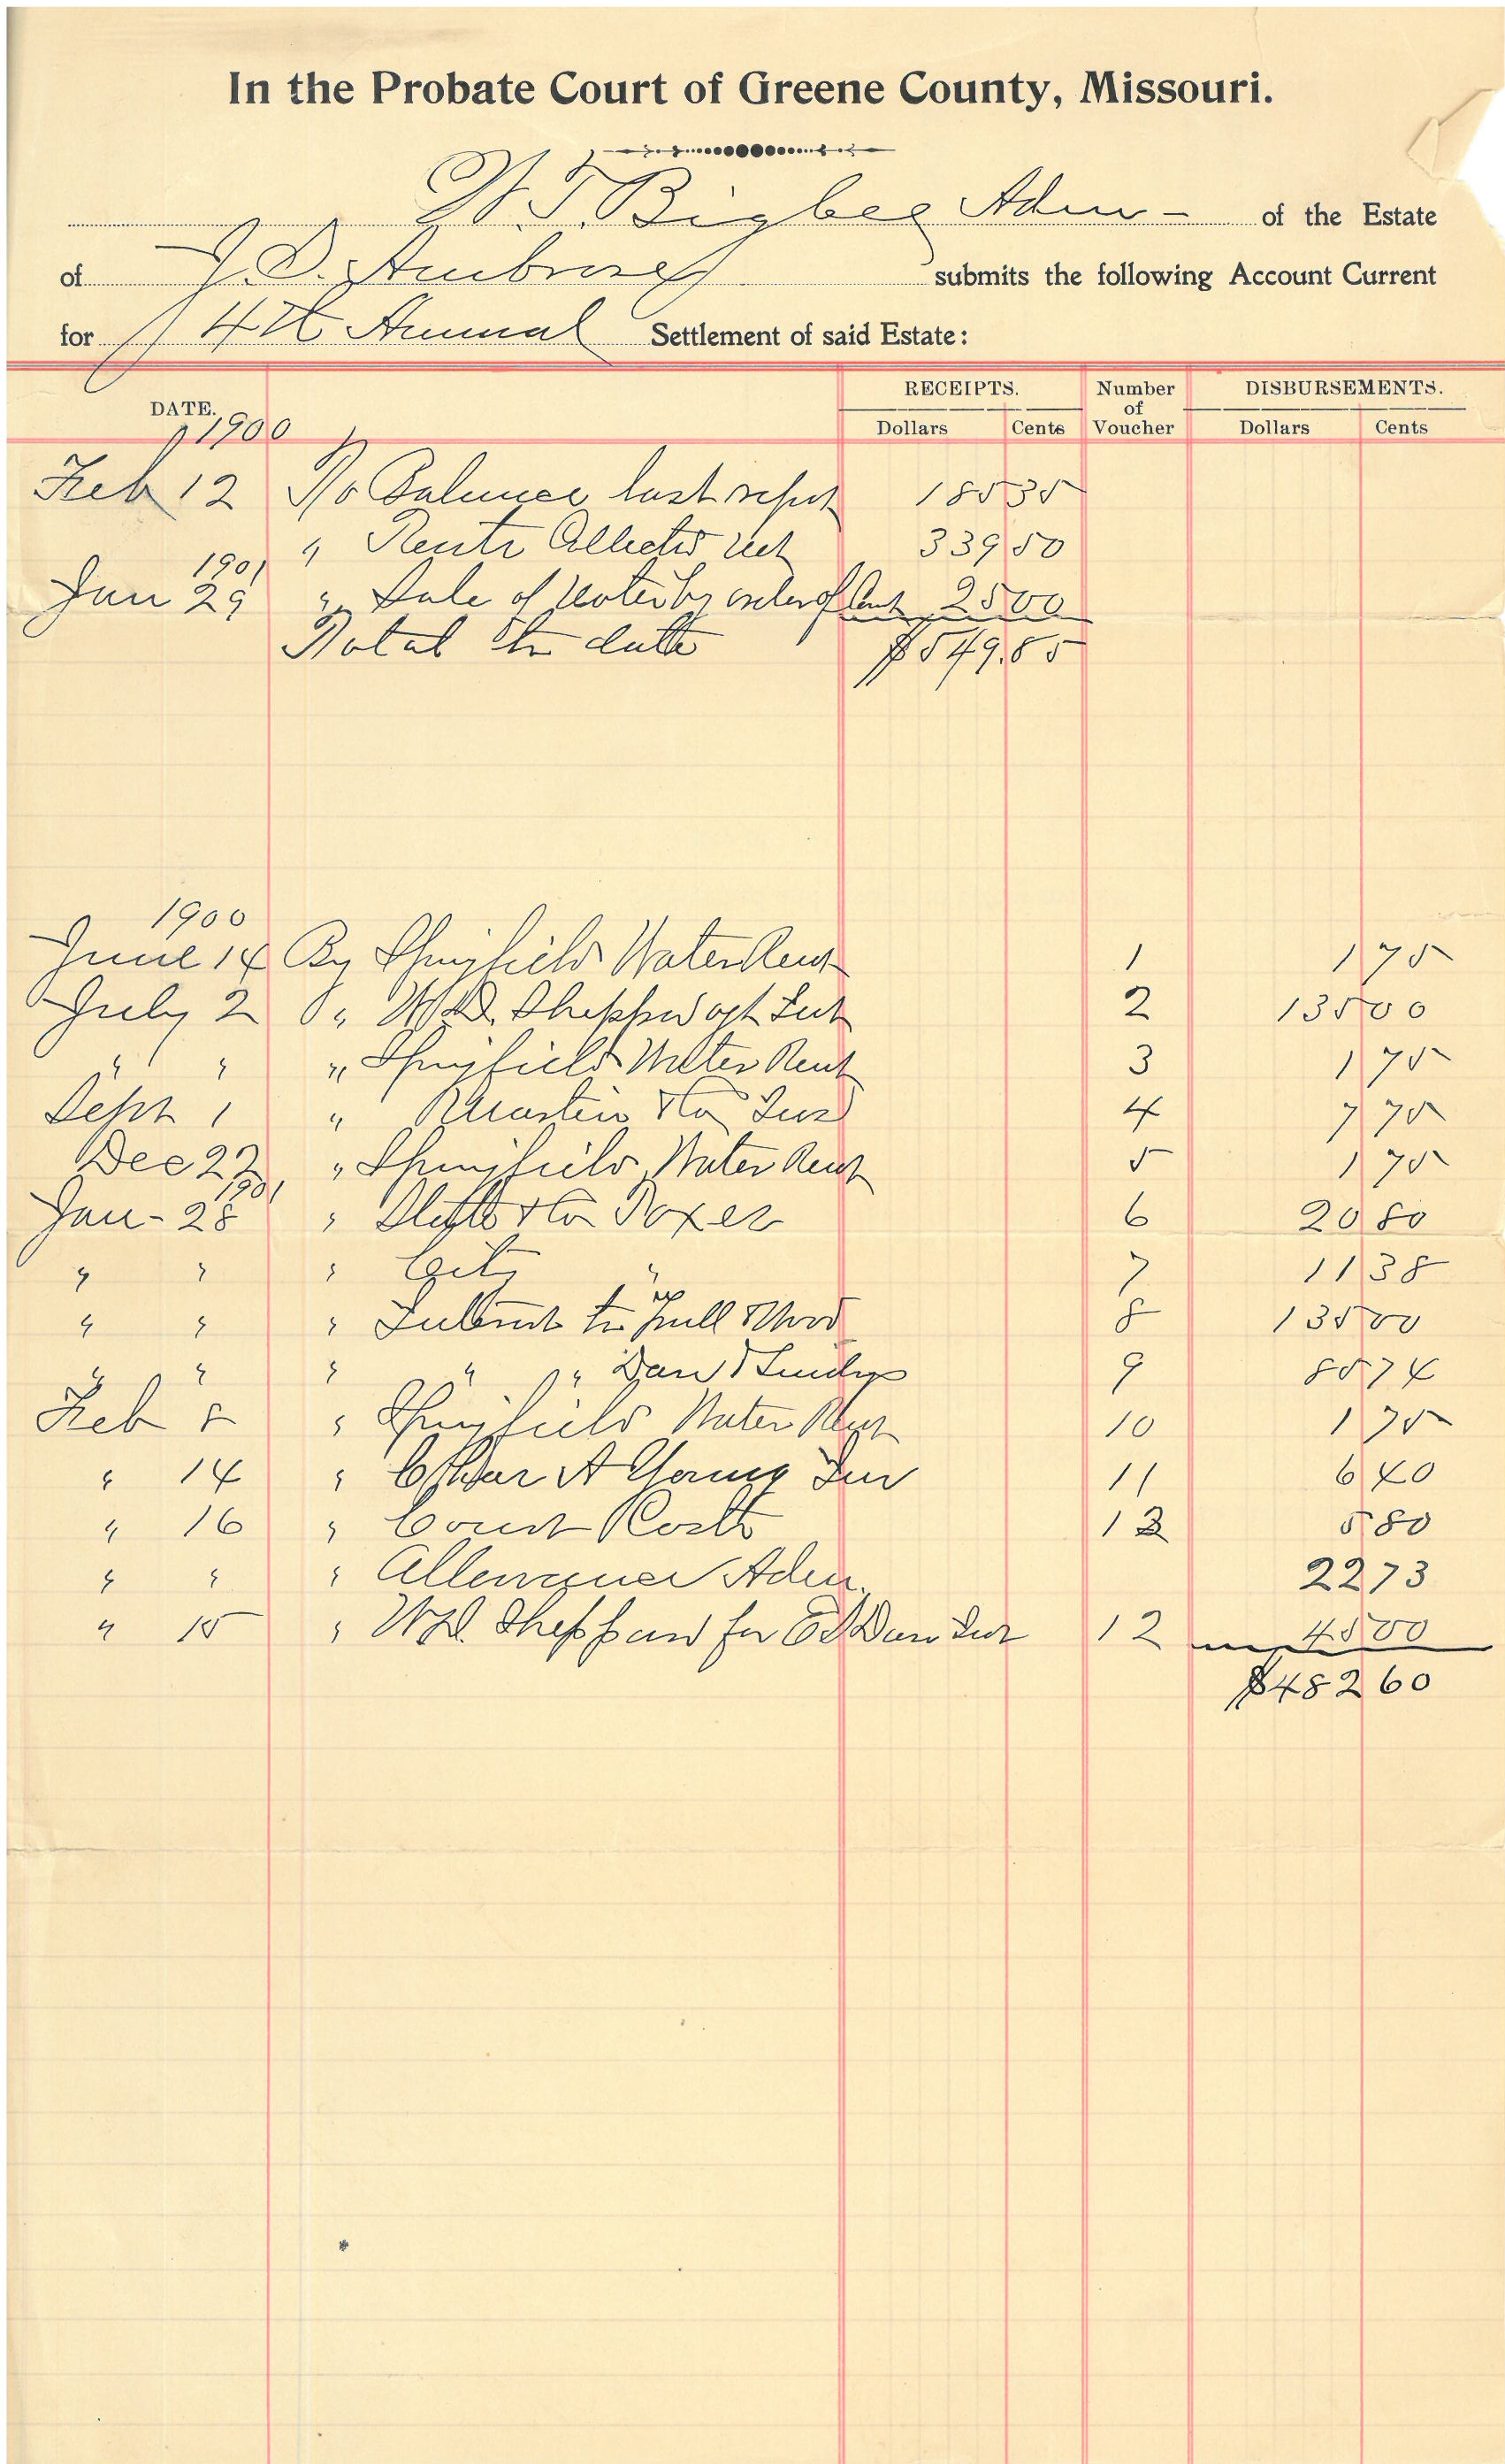 In the Probate Court of Greene County, Missouri.
W. T. Bigbee Adm- of the Estate
of J. D. Ambrose submits the following Account Current
for 4th Annual Settlement of said Estate:
DATE. RECEIPTS. Number of Voucher DISBURSEMENTS.
Dollars Cents Dollars Cents
1900
Feb 12 To Balance last report 185 35
" Rents Collected net 339 50
1901
Jan 29 " Sale of Notes by order of Court 25 00
Total to date $549.85
1900
June 14 By Springfield Water Rent 1 1 75
July 2 " W.D. Sheppard Int 2 135 00
" " " Springfield Water Rent 3 1 75
Sept 1 " & Co Ins 4 7 75
Dec 22 " Springfield Water Rent 5 1 75
1901
Jan - 28 " State & Co Taxes 6 20 80
" " " City " 7 11 38
" " " Interest to Hull & Wood 8 135 00
" " " " " 9 85 74
Feb 5 " Springfield Water Rent 10 1 75
" 14 " A Young Ins 11 6 40
" 16 " Court Costs 13 5 80
" " " Allowance Adm. 22 73
" 15 " W.D. Sheppard for Int 12 45 00
$482 60